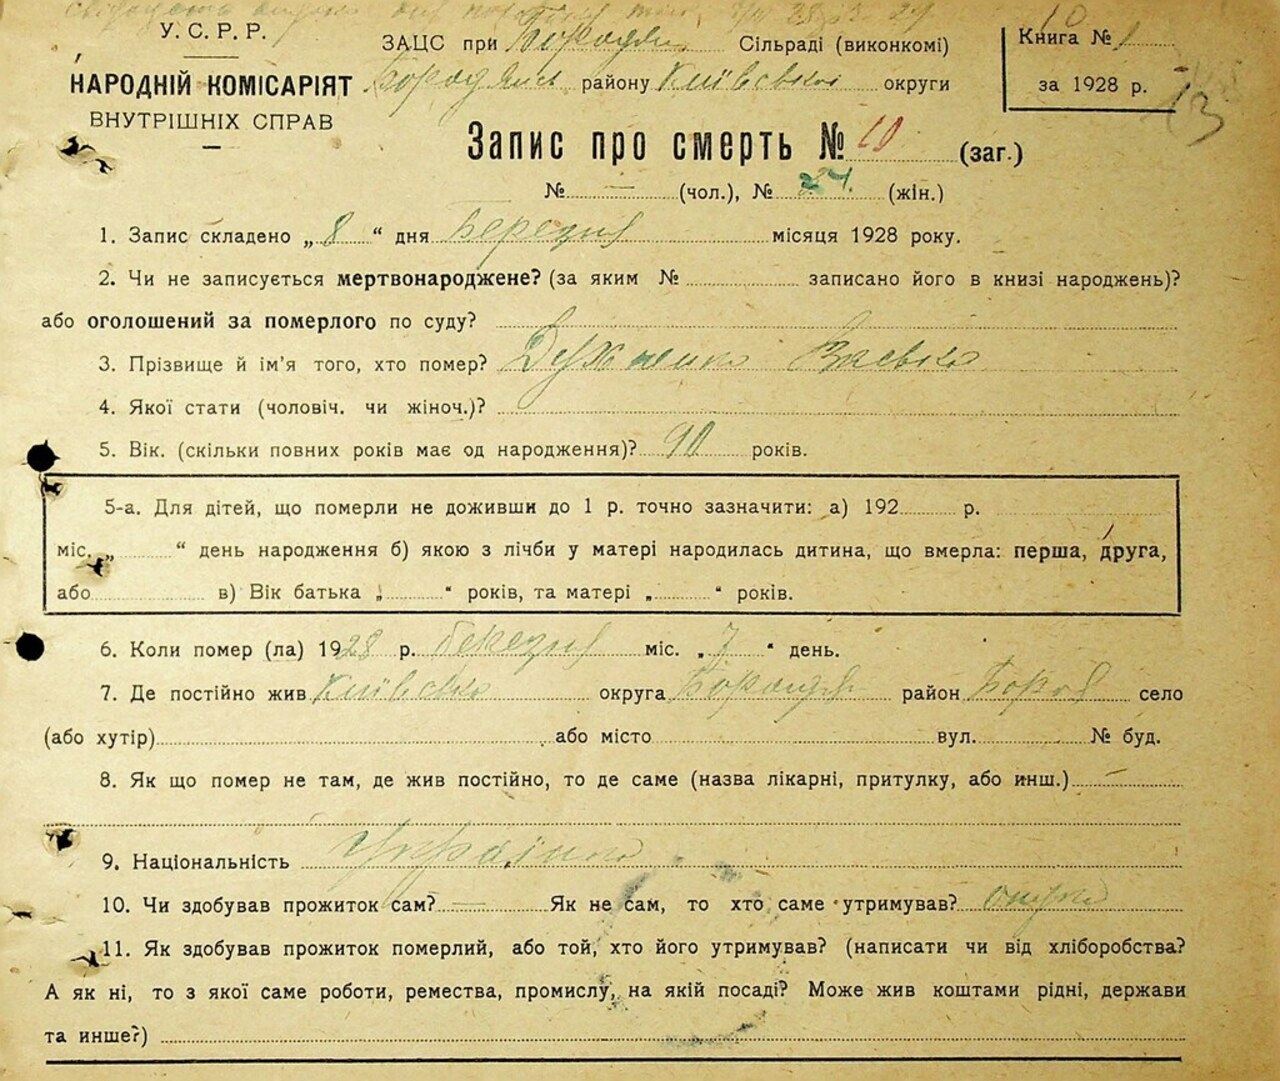 У. С. Р. Р.
НАРОДНІЙ КОМІСАРІЯТ
ВНУТРІШНІХ СПРАВ
ЗАЦС при Бородян Сільраді (виконкомі)
Бородянськ району Київської округи
Книга № 1
за 1928 р.
13
Запис про смерть № 10 (заг.)
№ — (чол.), № (жін.)
1. Запис складено „ 8 “ дня березня місяця 1928 року.
2. Чи не записується мертвонароджене? (за яким № записано його в книзі народжень)?
або оголошений за померлого по суду?
3. Прізвище й ім'я того, хто помер?
4. Якої стати (чоловіч. чи жіноч.)?
5. Вік. (скільки повних років має од народження)? 90 років.
5-а. Для дітей, що померли не доживши до 1 р. точно зазначити: а) 192 р.
міс. „ “ день народження б) якою з лічби у матері народилась дитина, що вмерла: перша, друга,
або в) Вік батька „ “ років, та матері „ “ років.
6. Коли помер (ла) 1928 р. березня міс. „ 7 “ день.
7. Де постійно жив Київсько округа район село
(або хутір) або місто вул. № буд.
8. Як що помер не там, де жив постійно, то де саме (назва лікарні, притулку, або инш.) —
9. Національність
10. Чи здобував прожиток сам? — Як не сам, то хто саме утримував?
11. Як здобував прожиток померлий, або той, хто його утримував? (написати чи від хліборобства?
А як ні, то з якої саме роботи, ремества, промислу, на якій посаді? Може жив коштами рідні, держави
та инше?)